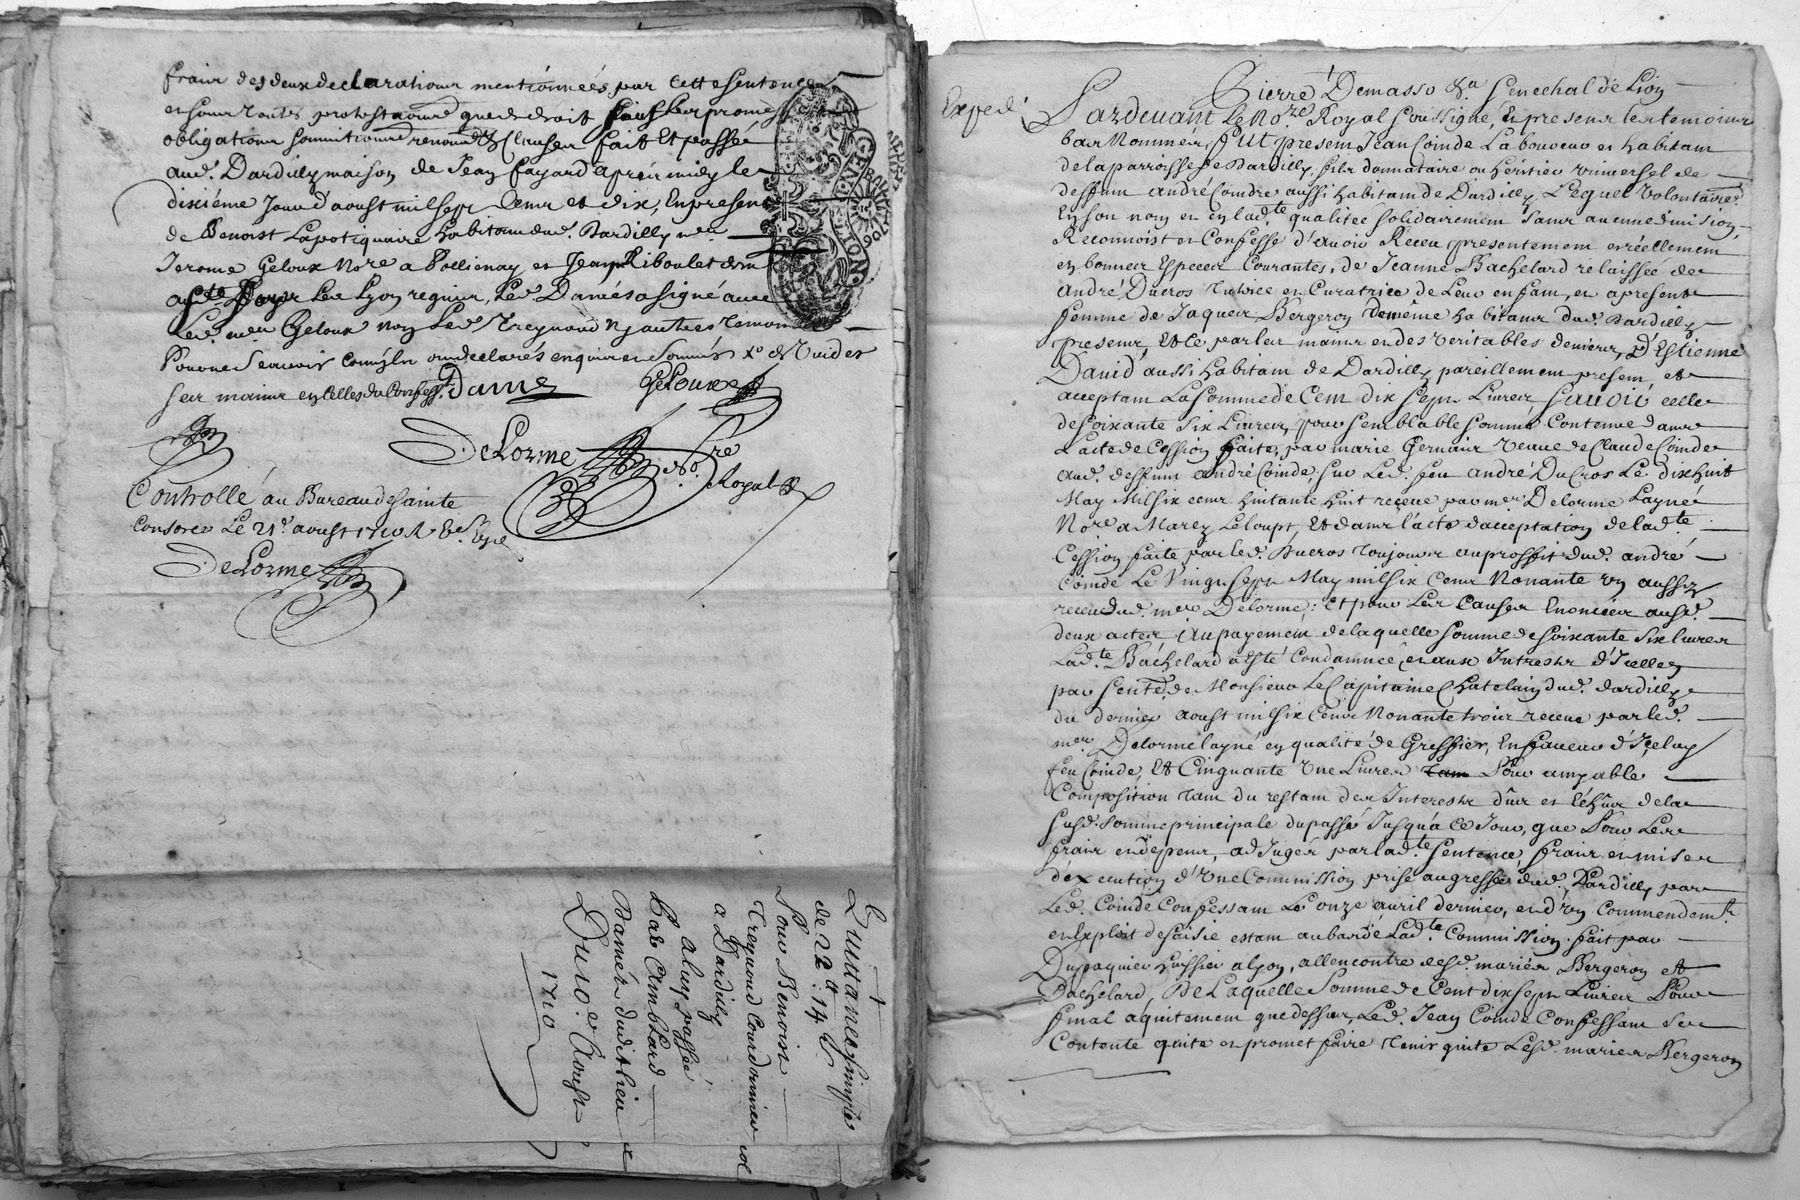 frais des deux declarations mentionnées par cette sentence
et sous toutes protestations que de droit sous les promesses
obligations soumitions renoncons & clauses fait Et passé
aud. Dardilly maison de Jean fayard apres midy le
dixiéme Jour d'aoust mil sept Cens et dix, En presence
de Benoist Lapotiquaire habitant dud. Dardilly me.
Jerome Geloux No.re a Pollienay et Jean Riboulet
Lyon requis, Led. Damés a signé avec
Led. me. Geloux non Led. Treynard Ny autres temoins
Pour ne scavoir comm'ils ont declarés enquis et Sommés
ses mains en celles du Confess.t Damez Geloux
DeLorme No.re Royal
Controllé au Bureau de Sainte
Consorce Le 21.e aoust 1710 R
DeLorme
GEN. DE LYON
Quittance finyée
de 22 ₶ : 14 s
Pour Benoist
Treynard Courdonnier
a Dardilly
a luy passée
Par Amblard
Damés dudit lieu
Du 10.e Aoust
1710
Pierre Demasso & Senechal de Lion
Expedié
Pardevant Le No.re Royal soussigné, En presence les temoins
bas Nommés, fut present Jean Coinde Laboureur et habitant
de la parroisse de Dardilly, fils donnataire ou héritier universel de
deffunt andré Coindre aussi habitant de Dardilly, Lequel Volontaire.t
En son nom et en lad.te qualitee solidairement sans aucune division,
Reconnoist et Confesse d'avoir Receu presentement et réellement
en bonnes Especes Courantes, de Jeanne Bachelard relaissée de
André Ducros tutrice et Curatrice de Leur enfans, et apresent
femme de Jaques Bergeron demême habitans dud. Dardilly
presens, Et Ce par les mains et des veritables deniers, D'Estienne
David aussi habitant de Dardilly pareillement present, et
acceptant La Somme de Cent dix sept Livres Savoir celle
de soixante Six Livres, pour semblable somme Contenue dans
L'acte de Cession faite, par marie Germain veuve de Claude Coinde
aud. deffunt andré Coinde, sur Led. feu andré DuCros Le dix huit
May Mil six cens huitante huit receue par me. Delorme Layné
No.re a Marcy Leloup, Et dans l'acte d'acceptation de lad.te
Cession faite par led. Ducros toujours au proffit dud. andré
Coinde Le Vingt sept May mil six Cens Nonante un aussy
receu dud. me. Delorme : Et pour Les Causes Enoncées ausd.
deux actes, au payement de laquelle somme de soixante six livres
Lad.te Bachelard a Esté Condamnée, et aux Intrests d'Icelles
par sent.e de Monsieur Le Capitaine Chatelain dud. dardilly
du dernier aoust mil six Cens Nonante trois receue par led.
me. Delorme layné en qualité de Greffier, En faveur d'Iceluy
feu Coinde, Et Cinquante Une Livres tam Pour amyable
Composition tant du restant des Interests dûs et léhûs de la
susd. somme principale du passé Jusqu'a Ce Jour, que Pour Les
frais et dépens, adjugés par lad.te sentence, frais et mises
d'éxecution d'Une Commission prise au greffe dud. Dardilly par
Led. Coinde Confessant Le onze avril dernier, et d'un Commendem.t
et Exploit de saisie estant au bas de Lad.te Commission fait par
Dupaquier huissier a lyon, allencontre desd. mariés Bergeron et
Bachelard, De Laquelle Somme de Cent dix sept Livres Pour
final aquitement que dessus, Led. Jean Coinde Confessant Se
Contente quite et promet faire tenir quite Lesd. mariés Bergeron